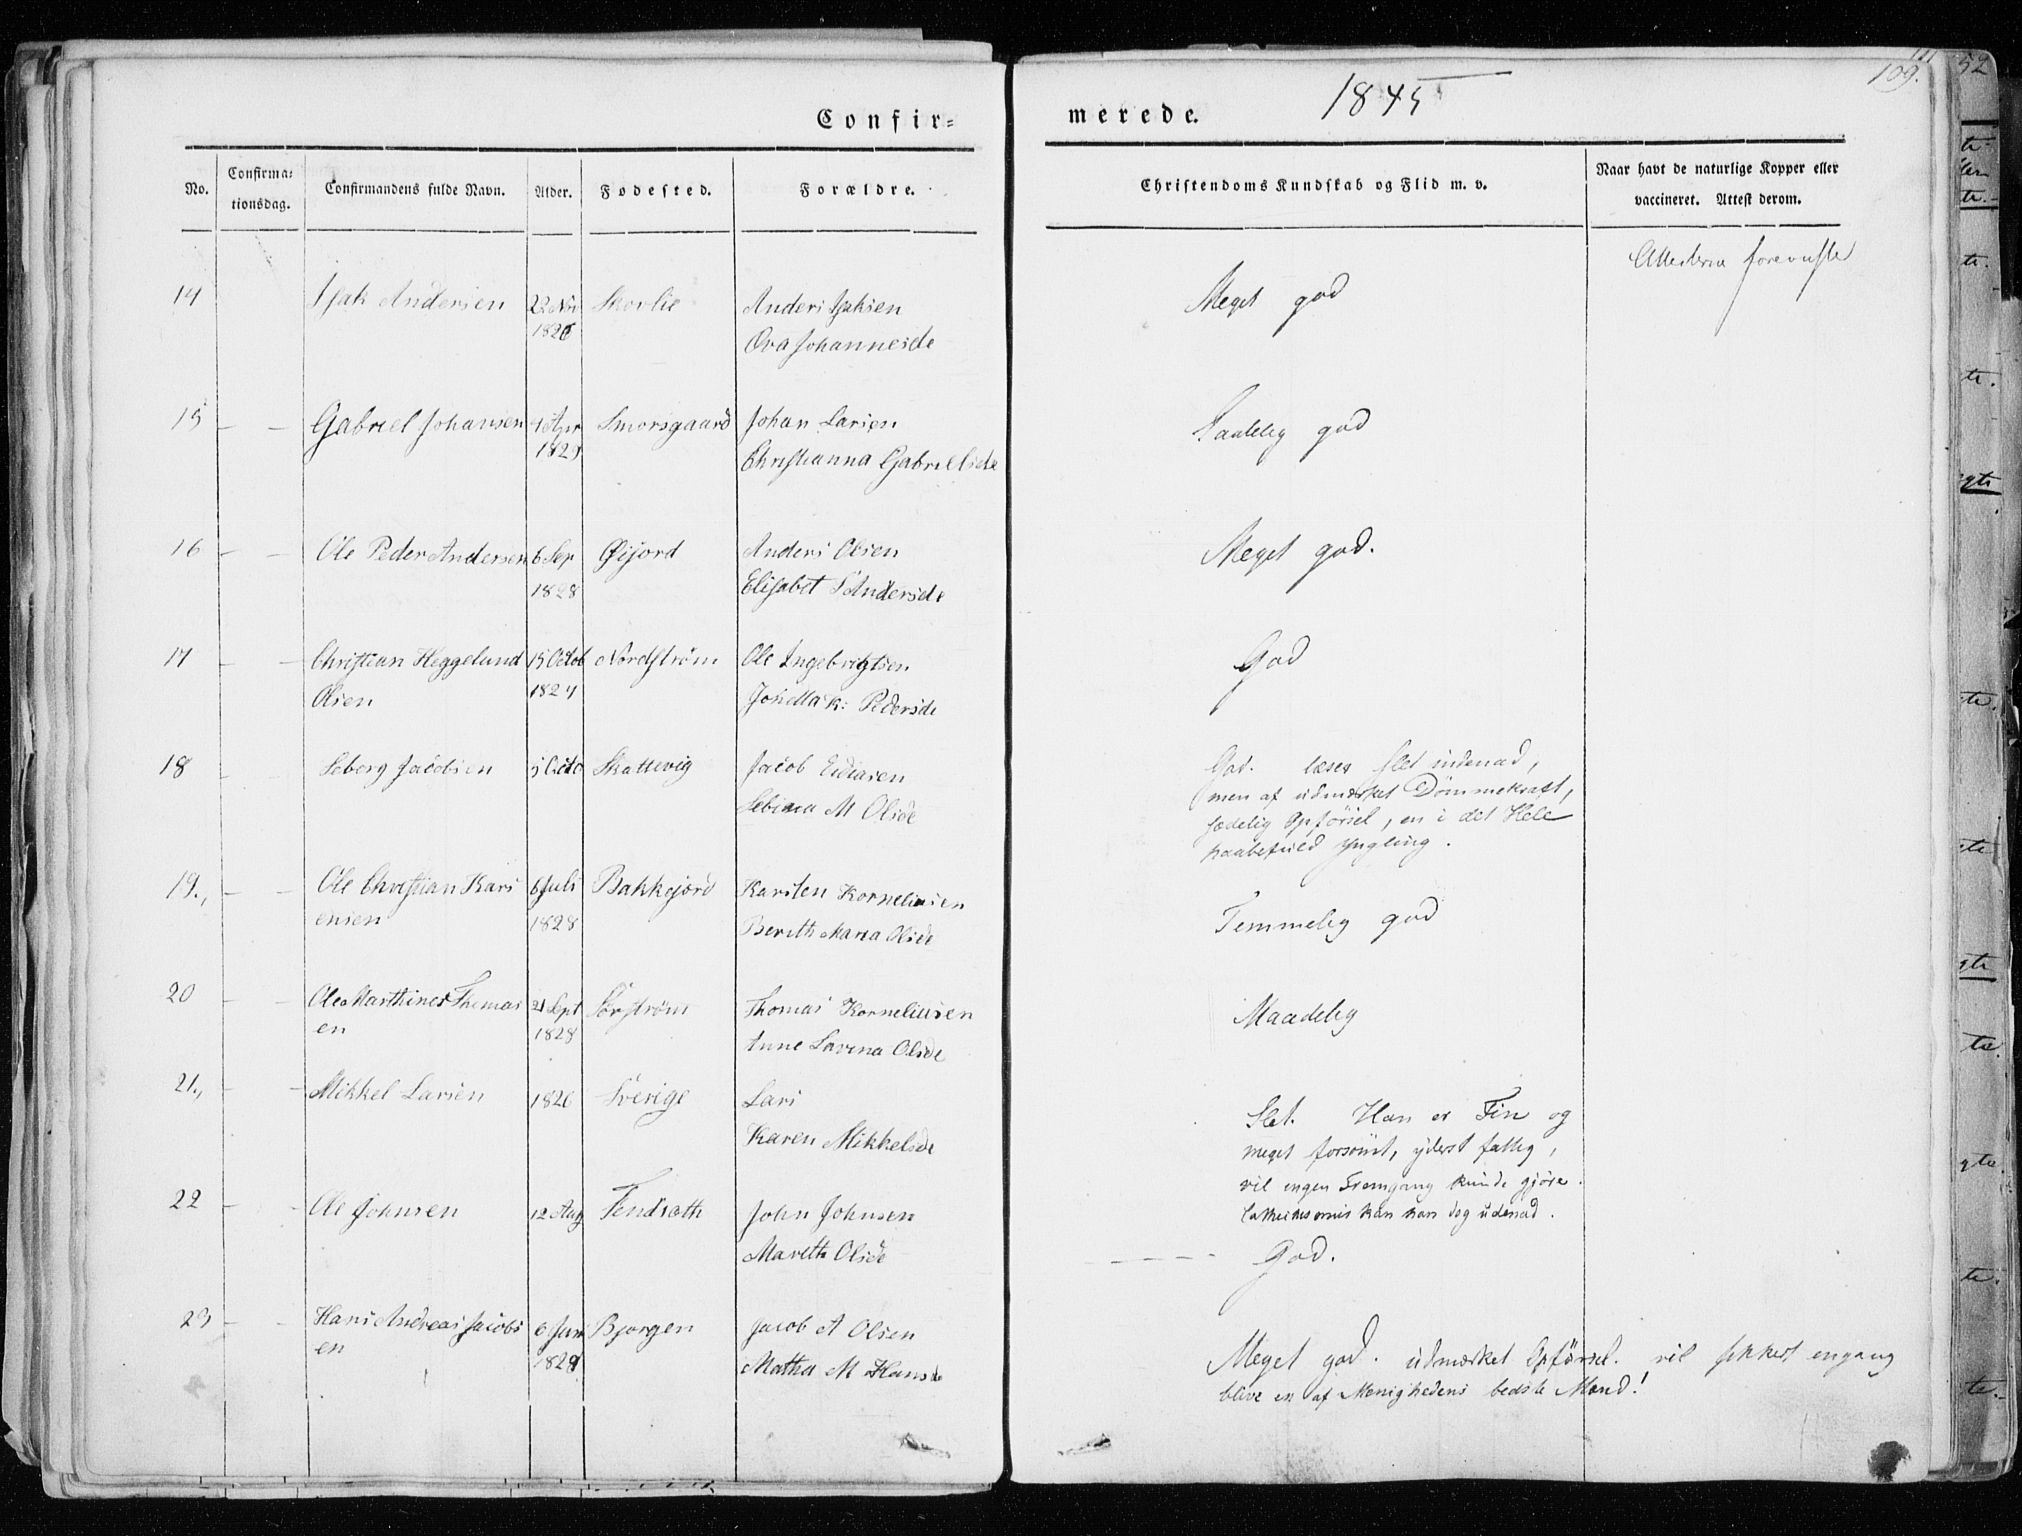 Confir=
merede.
1845
109.
No. Confirma=tionsdag. Confirmandens fulde Navn. Alder. Fødested. Forældre. Christendoms Kundskab og Flid m. v. Naar havt de naturlige Kopper eller vaccineret. Attest derom.
14 Isak Andersen 22 Nov 1826 Skorlie Anders Isaksen Meget god Attesterne foreviste
Johannesdr
15 - - Gabriel Johansen 4 Apr 1829 Smorsgaard Johan Larsen Taalelig god
Christianna Gabrielsdr
16 - - Ole Peder Andersen 6 Sep 1828 Øijord Anders Olsen Meget god.
Elisabet Andersdr
17 - - Christian Heggelund 15 Octob 1827 Nordstrøm Ole Ingebrigtsen God
Olsen Pedersdr
18 - - Seberg Jacobsen Octo Skattevig Jacob God. læser slet indenad,
M Olsdr men af udmærket Dømmekraft,
sædelig Opførsel, en i det Hele
haabefuld Yngling.
19., - - Ole Christian Kars 6 Juli 1828 Bakkejord Karsten Korneliusen Temmelig god
ensen Berith Maria Olsdr
20 - - Ole Marthines Thomas 21 Sept 1828 Sørstrøm Thomas Korneliusen Maadelig
en Anne Lavina Olsdr
21., - - Mikkel Larsen 1826 Sverige Lars Slet. Han er Fin og
Karen Mikkelsdr meget forsømt, yderst fattig,
vil ingen Fremgang kunde gjøre.
Cathechesmus kan han dog udenad.
22 - - Ole Johnsen 12 Aug John Johnsen
Mareth Olsdr - - - - God.
23 - - Hans Andreas Jacobs 6 Juni 1829 Bjorgen Jacob A Olsen
en Matha M Hansdr
Meget god. udmærket Opførsel. vil sikkert engang
blive en af Menighedens bedste Mænd!